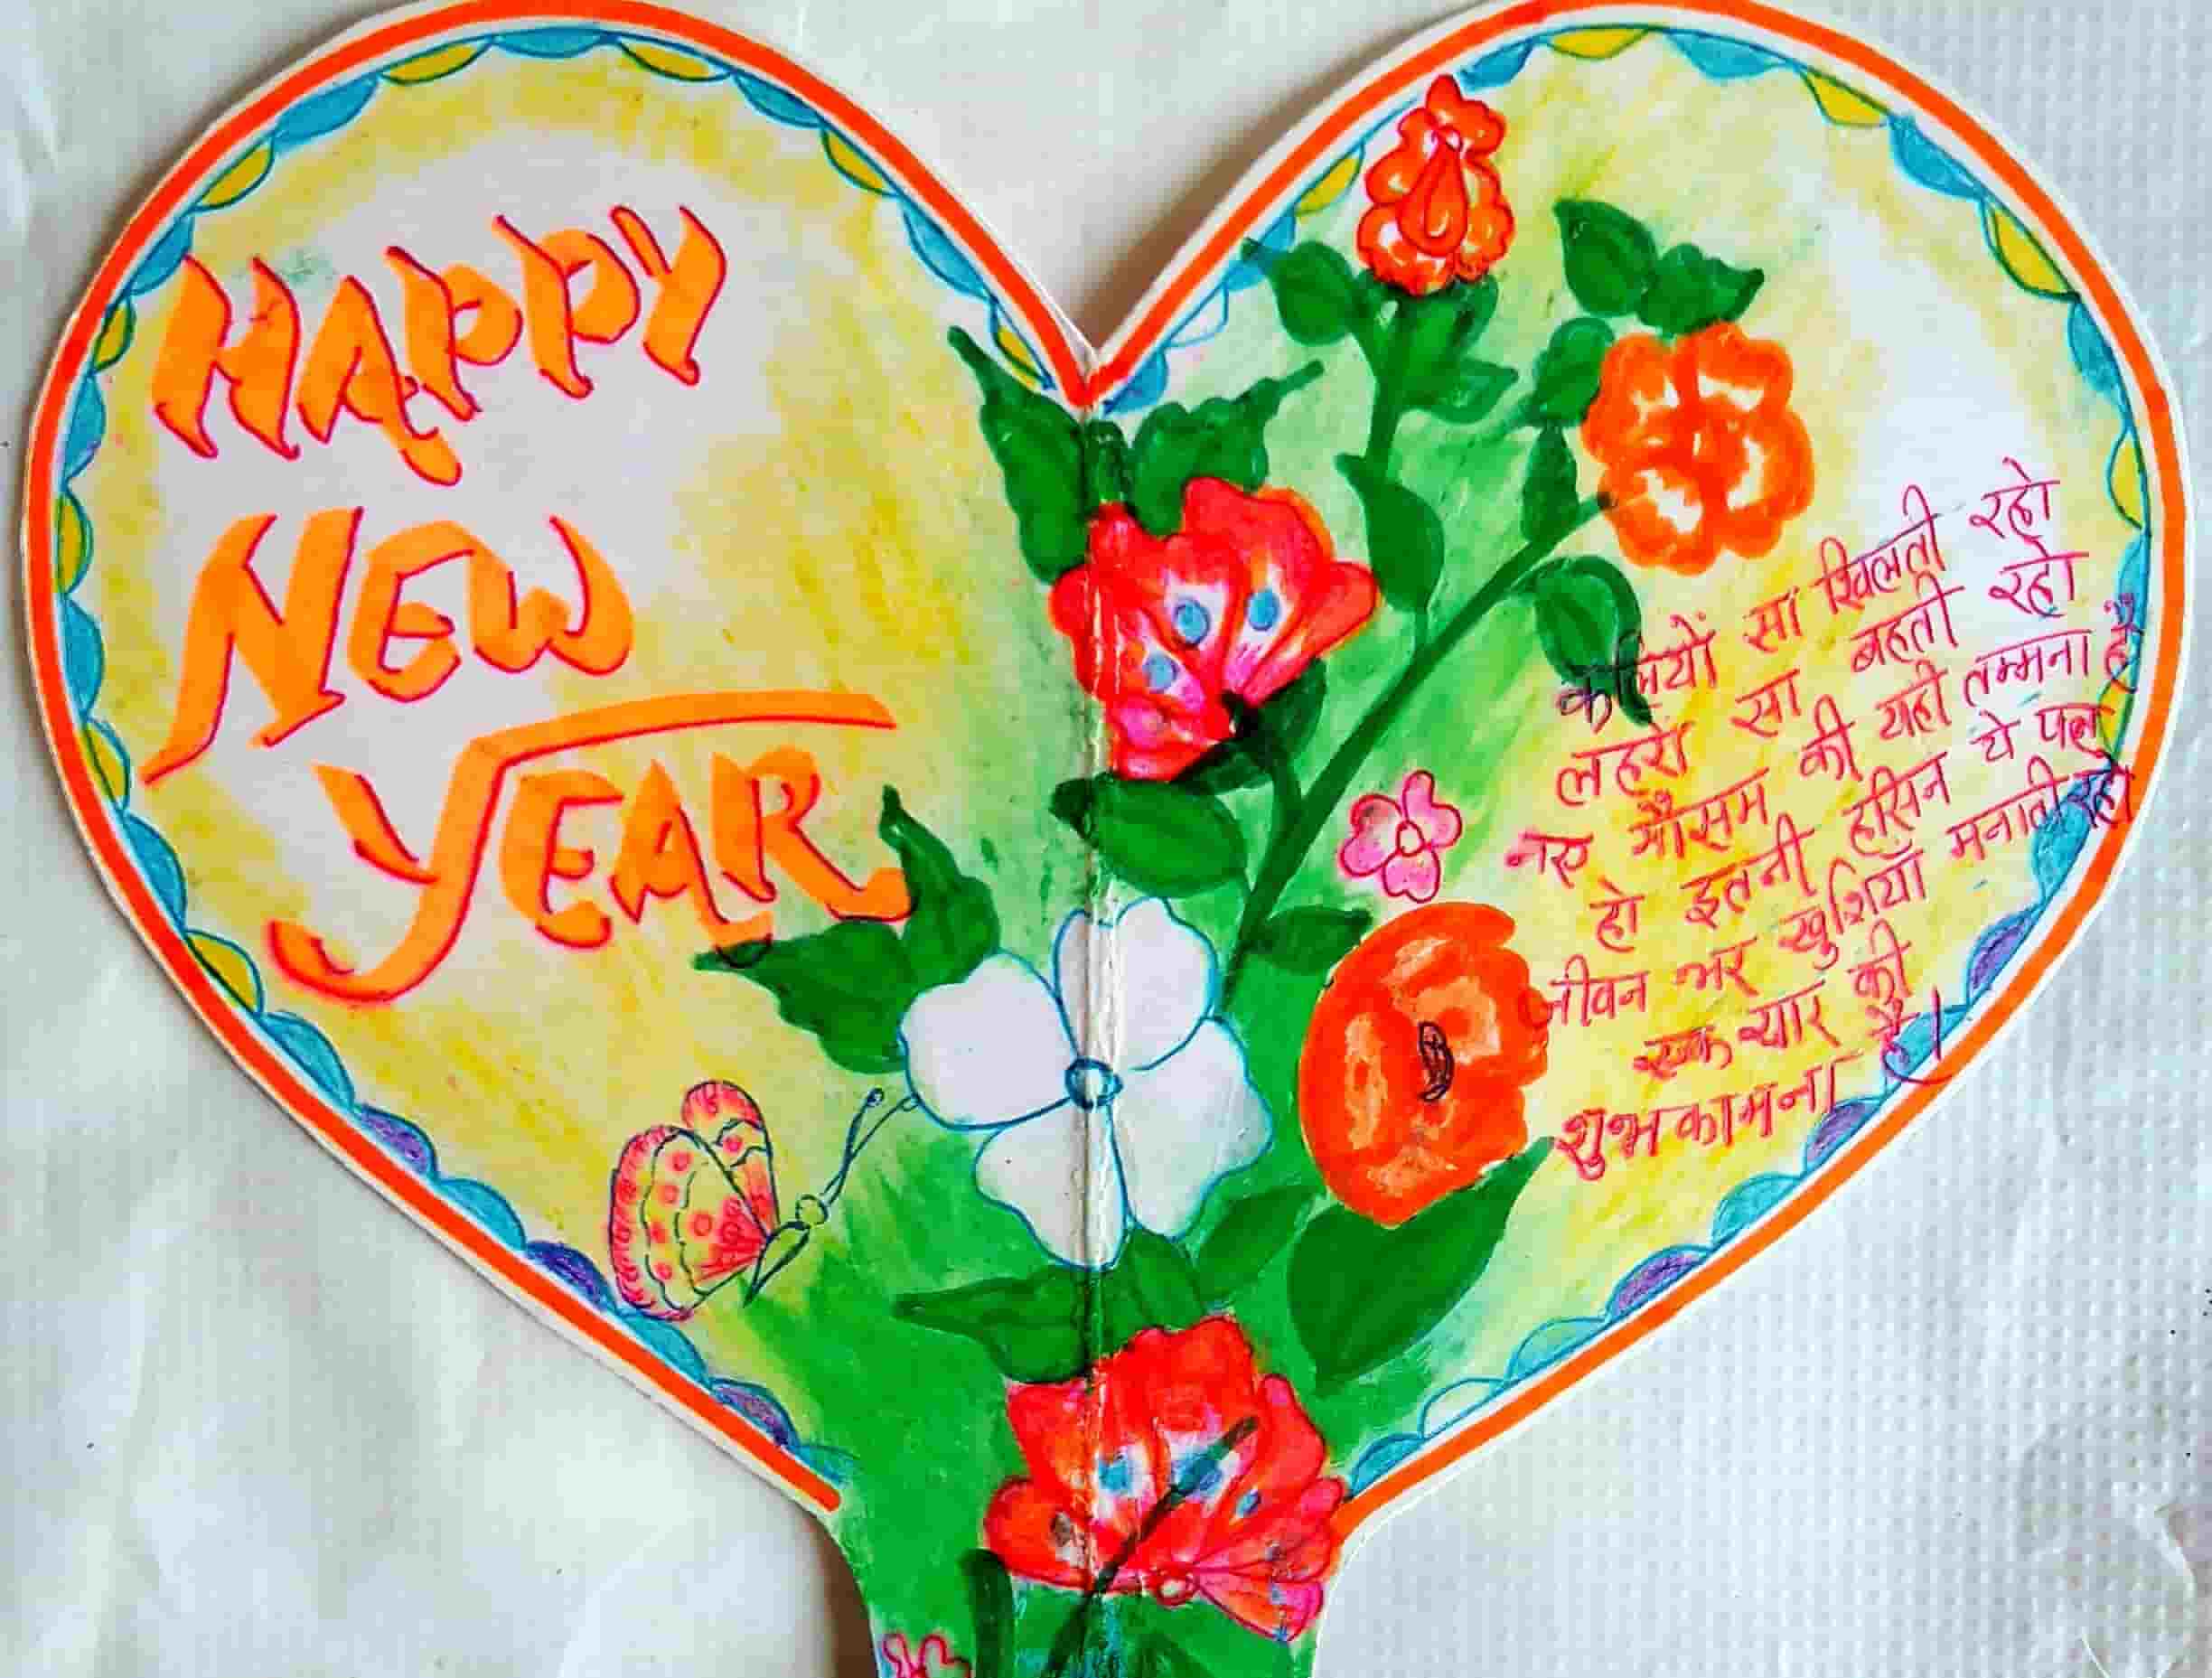 HAPPY
NEW
YEAR
कलियों सा खिलती रहो
लहरों सा बहती रहो
नए मौसम की यही तम्मना है
हो इतनी हसिन ये पल
जीवन भर खुशियाँ मनाती रहो
एक यार की
शुभकामना है।